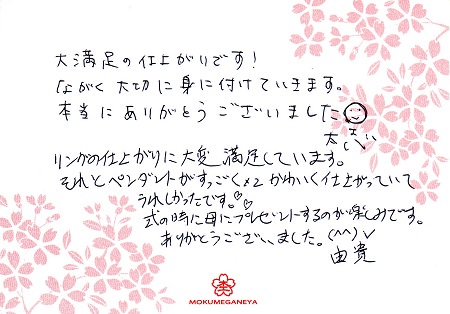 大満足の仕上がりです！
ながく大切に身に付けていきます。
本当にありがとうございました
リングの仕上がりに大変満足しています。
それとペンダントがすっごく×2かわいく仕上がっていて
うれしかったです。♡♡
式の時に母にプレゼントするのが楽しみです。
ありがとうございました。(^^)✓
由貴
MOKUMEGANEYA